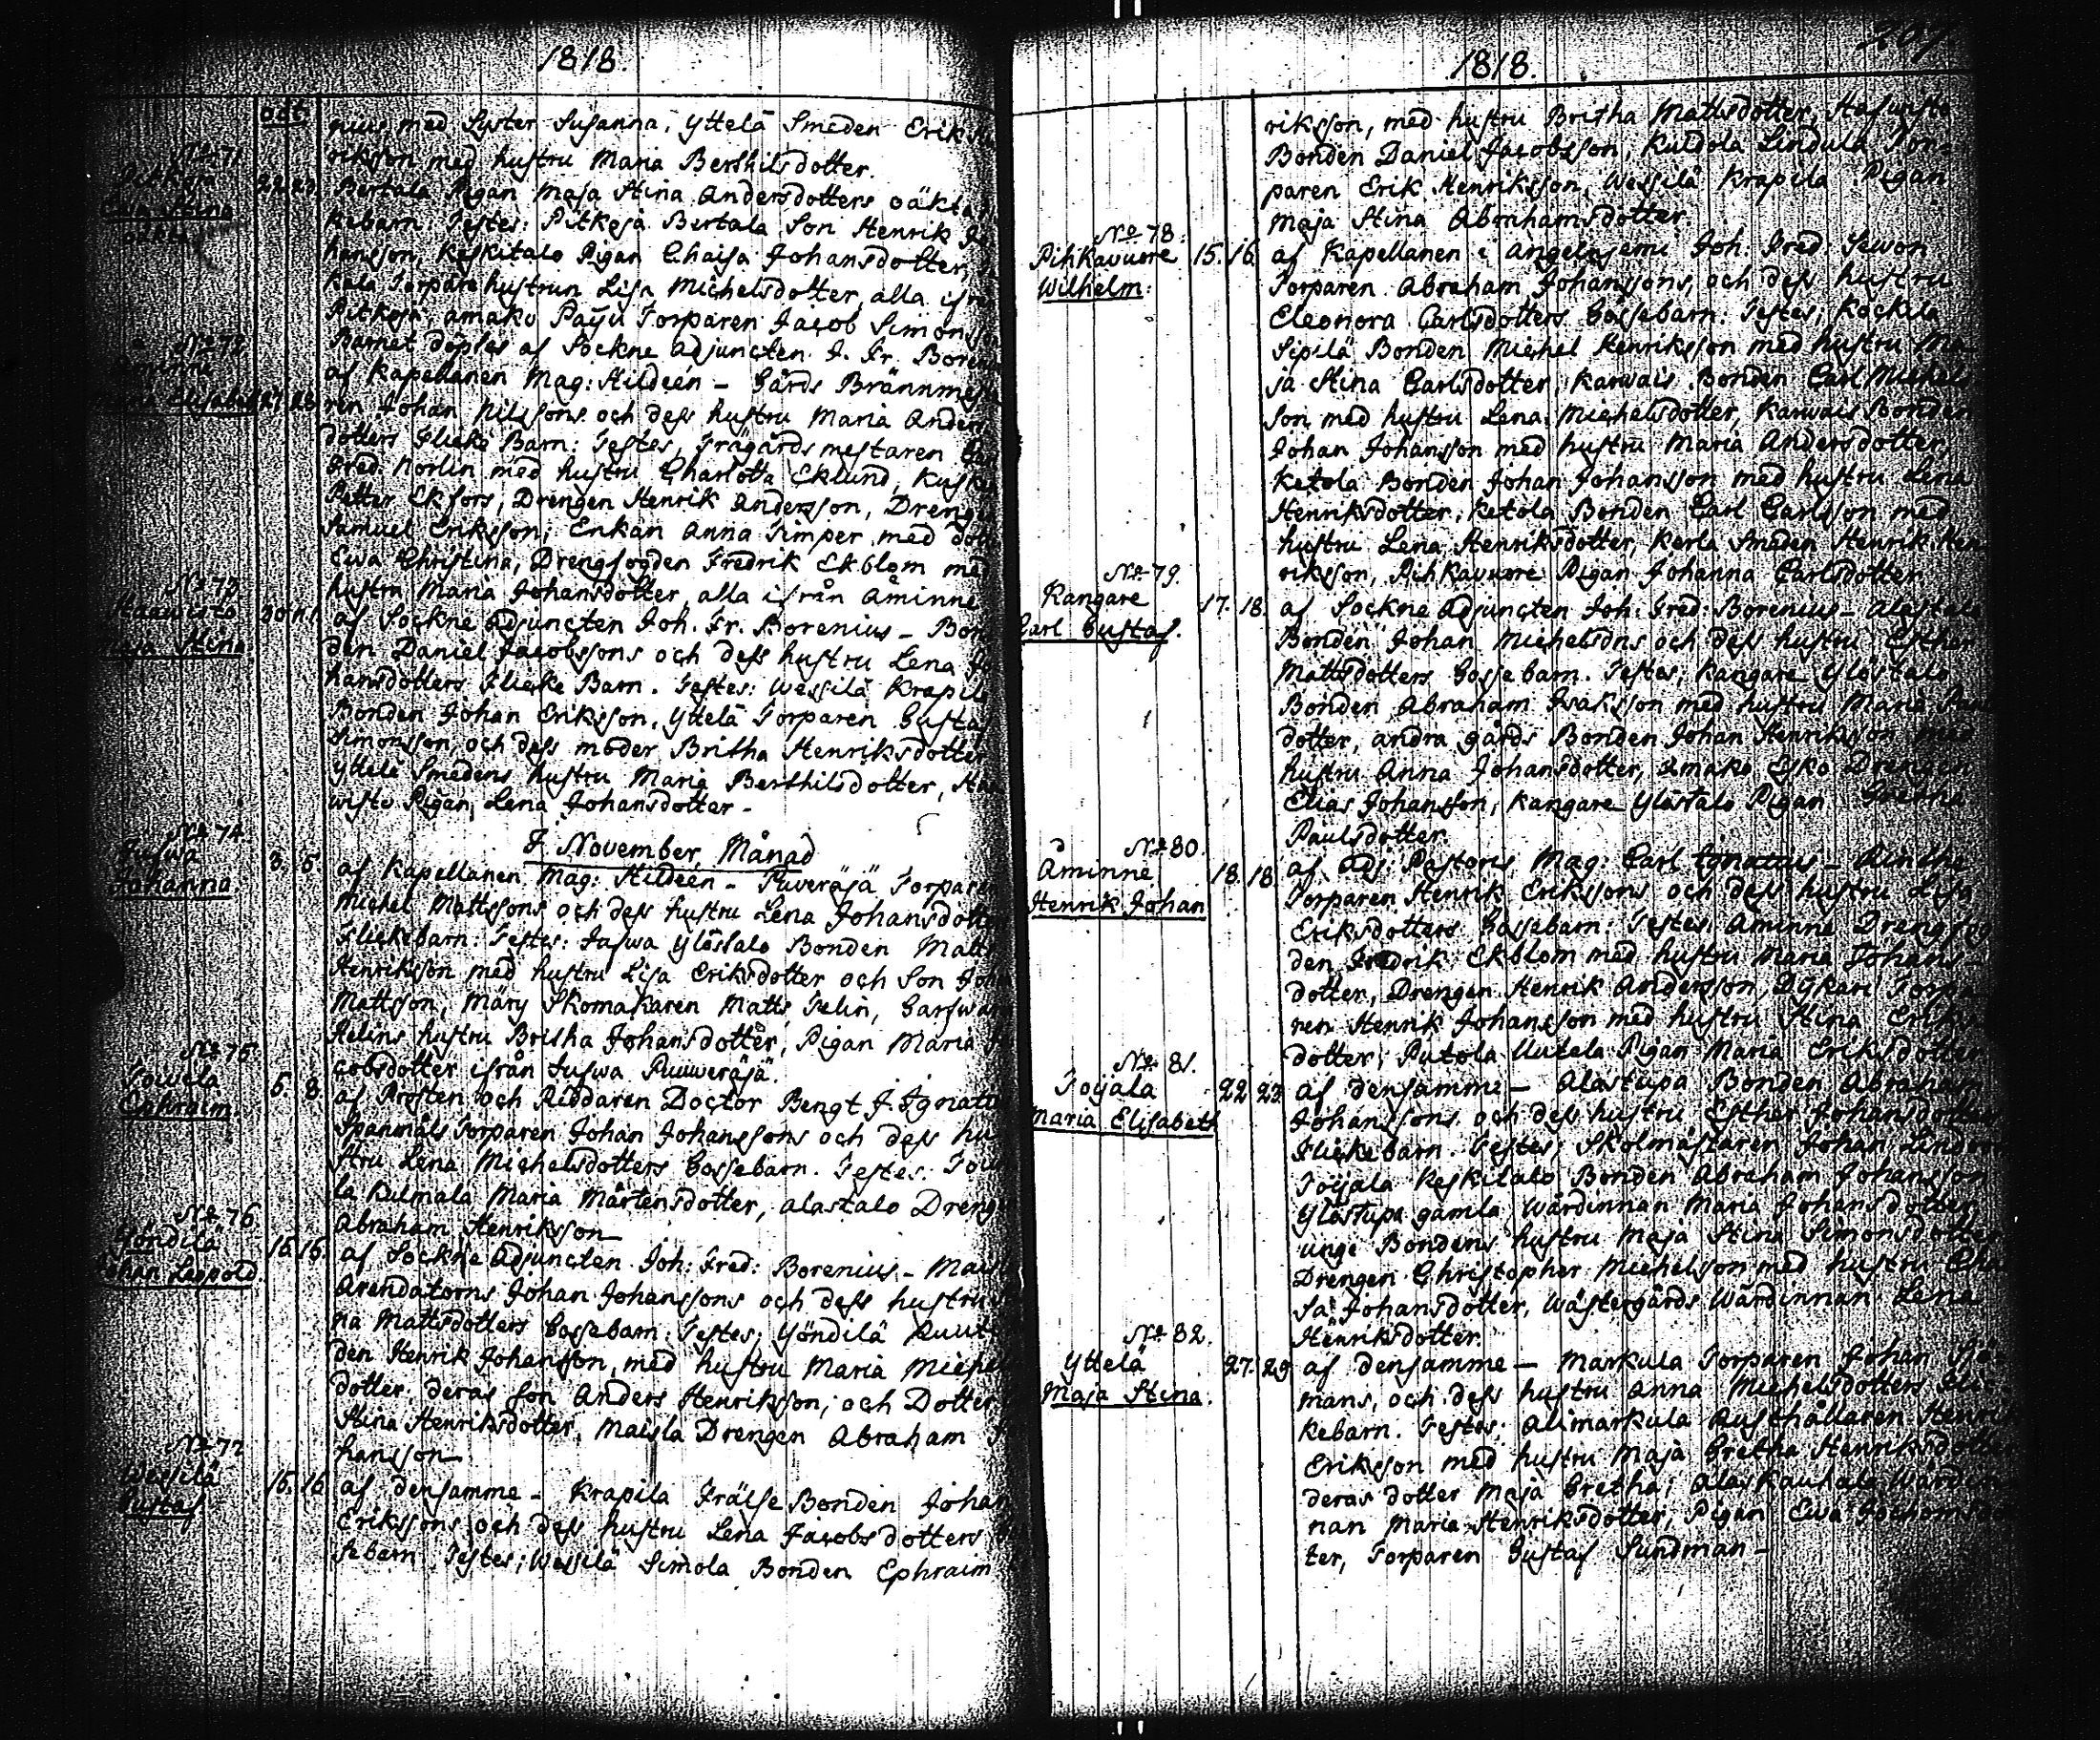 1818.
Oct:
nius med Syster Susanna, Yttelä Smeden Erik
riksson med hustru Maria Berthilsdotter.
No 71
Pitkejä
Ewa Stina
oäkta
22. 23. Bertala Pigan Maja Stina Andersdotters oäkta
kebarn: Testes: Pitkejä Bertala Son Henrik
hansson, Keskitalo Pigan Chaisa Johansdotter,
kala Torpare hustrun Lisa Michelsdotter, alla ifrån
Pitkejä, amako Paiju Torparen Jacob Simonsson
Barnet döptes af Sockne Adjuncten J. Fr. Borenius
No 72
Åminne
Elisabeth
27. 28. af Kapellanen Mag: Hildeén – Gårds Brännmesta
ren Johan Nilssons och dess hustru Maria Anders
dotters Flicke Barn: Testes, Trägårdsmestaren
Fred: Norlin med hustru Charlotta Eklund, Kusken
Petter Ekfors, Drengen Henrik Andersson, Drengen
Samuel Eriksson, Enkan Anna Timper med dotter
Ewa Christina, Drengfogden Fredrik Ekblom med
hustru Maria Johansdotter, alla ifrån Åminne
No 73.
Haawisto
Maja Stina
30 af Sockne Adjuncten Joh. Fr. Borenius – Bon
den Daniel Jacobssons och dess hustru Lena Jo
hansdotters Flicke Barn. Testes: Wessilä Krapila
Bonden Johan Eriksson, Yttelä Torparen Gustaf
Simonsson, och dess moder Britha Henriksdotter
Yttelä Smedens hustru Maria Berthilsdotter, Haa
wisto Pigan, Lena Johansdotter –
J. November Månad
No 74.
Juswa
Johanna
3. 5 af Kapellanen Mag: Hildeén – Torparen
Michel Mattssons och dess hustru Lena Johansdotters
Flickebarn: Testes: Juswa Ylöstalo Bonden Matts
Henriksson med hustru Lisa Eriksdotter och Son Johan
Mattsson, Märy Skomakaren Matts Felin,
Felins hustru Britha Johansdotter, Pigan Maria Ja
cobsdotter ifrån Juswa Puuweräjä.
No 75
Towela
Ephraim
5. 8. af Prosten och Riddaren Doctor Bengt J. Ignatius
Spanmåls Torparen Johan Johanssons och dess hu
stru Lena Michelsdotters Gossebarn. Testes: Towe
la Kulmala Maria Mårtensdotter, alastalo Drengen
Abraham Henriksson
No 76
Yöndilä
Johan Leopold.
15. 16. af Sockne Adjuncten Joh: Fred: Borenius – Maisla
Arendatorns Johan Johanssons och dess hustru
na Mattsdotters Gossebarn: Testes; Yöndilä
den Henrik Johansson, med hustru Maria Michels
dotter deras son Anders Henriksson, och Dotter
Stina Henriksdotter, Maisla Drengen Abraham Jo
hansson
No 77
Wessilä
Gustaf
15. 16. af densamme – Krapila Frälse Bonden Johan
Erikssons och dess hustru Lena Jacobsdotters Gos
sebarn. Testes; Wessilä Simola Bonden Ephraim
1818.
riksson, med hustru Britha Mattsdotter,
Bonden Daniel Jacobsson, Kuldola Lindula Tor=
paren Erik Henriksson, Wessilä Krapila Pigan
Maja Stina Abrahamsdotter.
No 78.
Pihkavuore
Wilhelm:
15. 16. af Kapellanen i angelniemi Joh. Fred Sewon
Torparen Abraham Johanssons, och dess hustru
Eleonora Carlsdotters Gossebarn: Testes; Kockila
Sipilä Bonden Michel Henriksson med hustru Ma
ja Stina Carlsdotter, Karwais Bonden Carl Michels
son med hustru Lena Michelsdotter, Karwais Bonden
Johan Johansson med hustru Maria Andersdotter,
Ketola Bonden Johan Johansson med hustru Lena
Henriksdotter, Ketola Bonden Carl Carlsson med
hustru Lena Henriksdotter, Kerla Smeden Henrik Hen
riksson, Pihkavuore Pigan Johanna Carlsdotter
No 79.
Kangare
Carl Gustaf.
17. 18. af Sockne Adjuncten Joh: Fred: Borenius – alastalo
Bonden Johan Michelsons och dess hustru Esther
Mattsdotters Gossebarn. Testes; Kangare Ylöstalo
Bonden Abraham Isaksson med hustru Maria
dotter, andra gårds Bonden Johan Henriksson med
hustru Anna Johansdotter, Drengen
Elias Johansson, Kangare Ylöstalo Pigan Gretha
Paulsdotter.
No 80.
Åminne
Henrik Johan
18. 18. af Adj: Pastoris Mag: Carl Ignatius –
Torparen Henrik Erikssons och dess hustru Lisa
Eriksdotters Gossebarn: Testes, Åminne Drengfog
den Fredrik Ekblom med hustru Maria Johans-
dotter, Drengen Henrik Andersson, Torpa
ren Henrik Johansson med hustru Stina Eriks
dotter, Putola Uutela Pigan Maria Eriksdotter
No 81.
Toijala
Maria Elisabeth
22 23. af densamme – Alastupa Bonden Abraham
Johanssons och dess hustru Esther Johansdotters
Flickebarn. Testes; Skolmästaren Johan
Toijala Keskitalo Bonden Abraham Johansson
Ylöstupa gamla Wärdinnan Maria Johansdotter,
unge Bondens hustru Maja Stina Simonsdotter
Drengen Christopher Michelson med hustru Chai
sa Johansdotter, Wästergårds Wärdinnan Lena
Henriksdotter.
No 82.
Yttelä
Maja Stina.
27. 29. af densamme – Markula Torparen Johan
mans, och dess hustru Anna Michelsdotters Flic
kebarn. Testes; Alimarkula Rusthållaren Henrik
Eriksson med hustru Maja Gretha Henriksdotter
deras dotter Maja Gretha; Wärdin
nan Maria Henriksdotter, Pigan Ewa
ter, Torparen Gustaf Sundman –